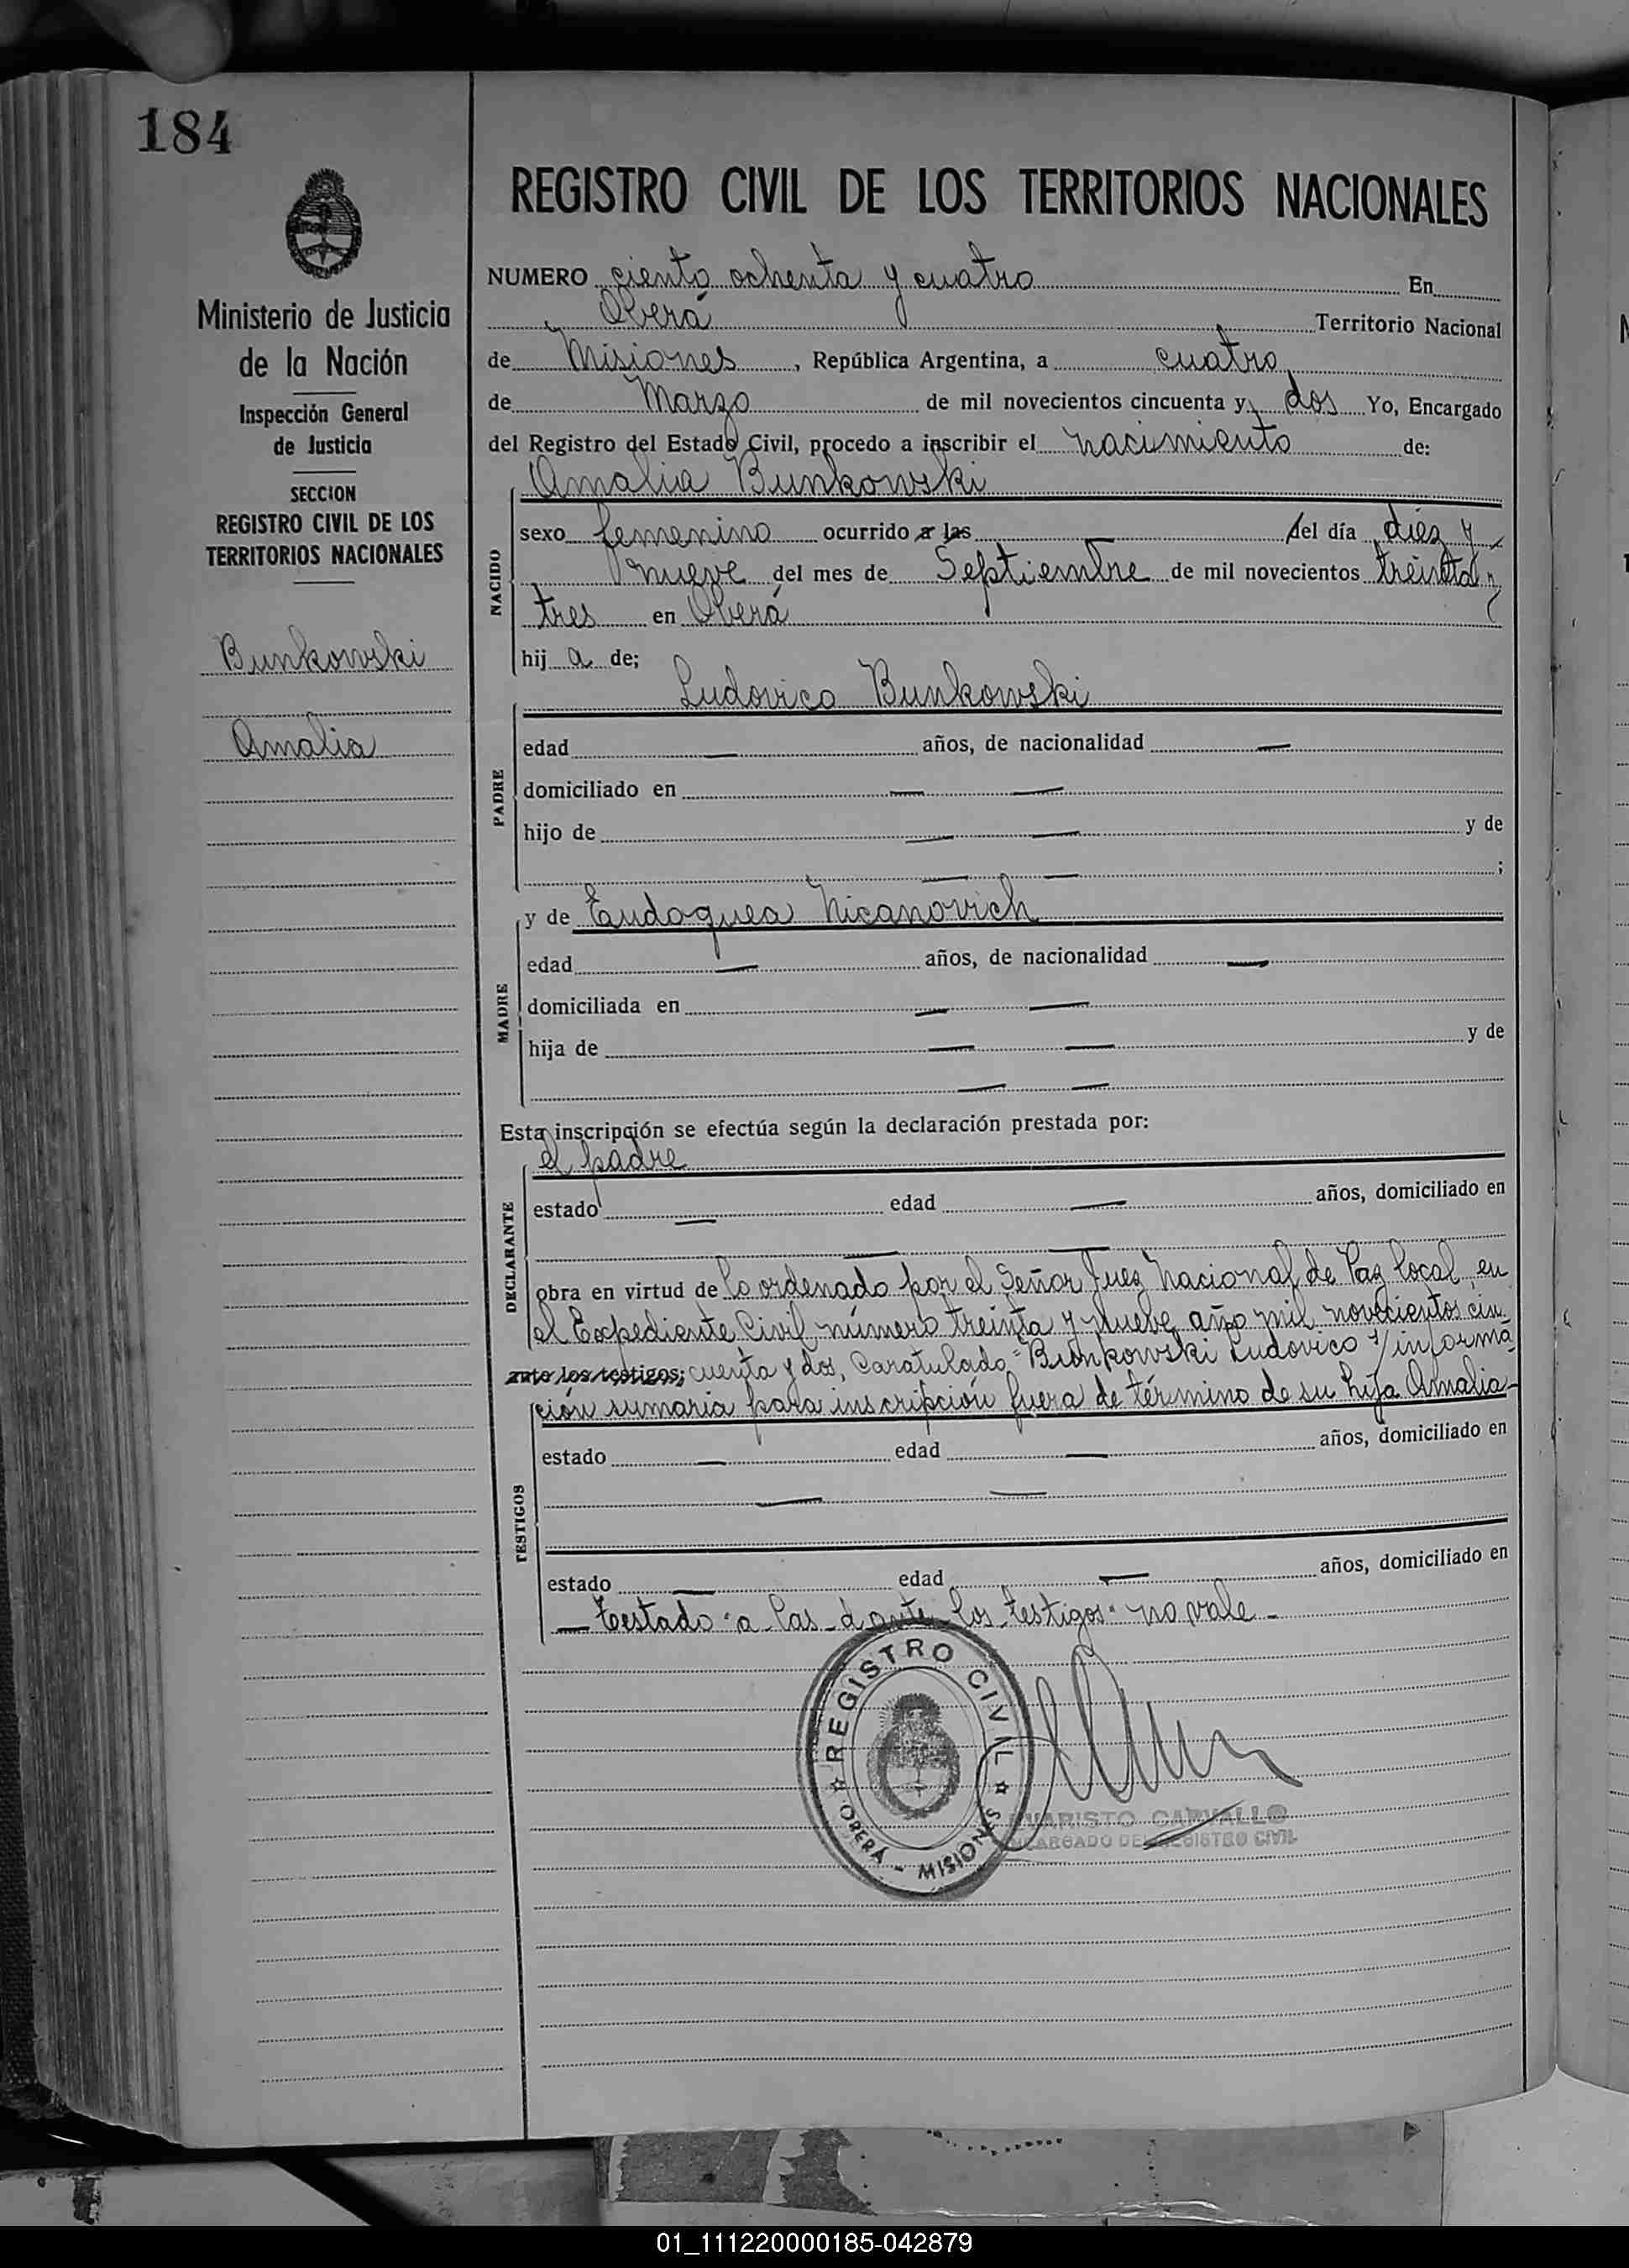 184
Ministerio de Justicia
de la Nación
Inspección General
de Justicia
SECCION
REGISTRO CIVIL DE LOS
TERRITORIOS NACIONALES
Bunkowski
Amalia
REGISTRO CIVIL DE LOS TERRITORIOS NACIONALES
NUMERO ciento ochenta y cuatro En
Oberá Territorio Nacional
de Misiones, República Argentina, a cuatro
de Marzo de mil novecientos cincuenta y dos Yo, Encargado
del Registro del Estado Civil, procedo a inscribir el nacimiento de:
Amalia Bunkowski
NACIDO
sexo femenino ocurrido a las del día diez y
nueve del mes de Septiembre de mil novecientos treinta y
tres en Oberá
hij a de;
Ludovico Bunkowski
PADRE
edad — años, de nacionalidad —
domiciliado en — —
hijo de — — y de
— — ;
y de Eudoquea Nicanovich
MADRE
edad — años, de nacionalidad —
domiciliada en — —
hija de — — y de
— —
Esta inscripción se efectúa según la declaración prestada por:
el padre
DECLARANTE
estado — edad — años, domiciliado en
— —
obra en virtud de lo ordenado por el Señor Juez Nacional de Paz local, en
el Expediente Civil número treinta y nueve año mil novecientos cin-
ante los testigos; cuenta y dos, Caratulado "Bunkowski Ludovico s/ informa-
ción sumaria para inscripción fuera de término de su hija Amalia-
TESTIGOS
estado — edad — años, domiciliado en
— —
estado — edad — años, domiciliado en
— Testado "a las - ante los testigos" no vale -
REGISTRO CIVIL
OBERÁ - MISIONES
EVARISTO CARVALLO
ENCARGADO DEL REGISTRO CIVIL
01_111220000185-042879